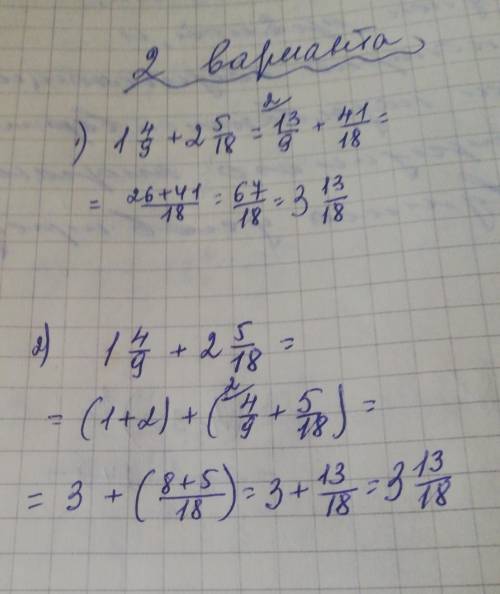 2 варианта
1) 1 4/9 + 2 5/18 = 2 13/9 + 41/18 =
= 26+41/18 = 67/18 = 3 13/18
2) 1 4/9 + 2 5/18 =
= (1+2) + (2 4/9 + 5/18) =
= 3 + (8+5/18) = 3 + 13/18 = 3 13/18